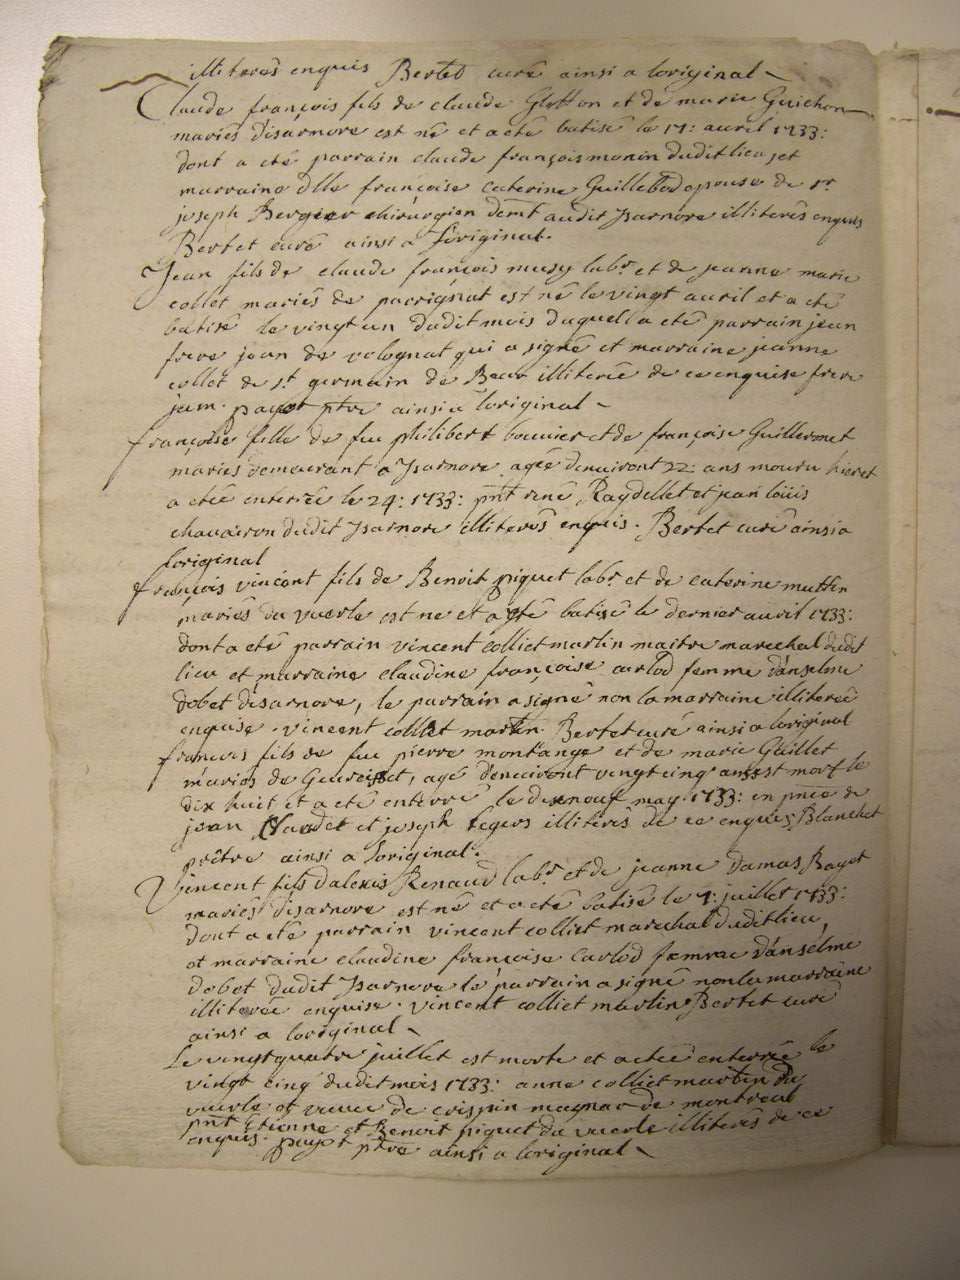 illiterés enquis Bertet curé ainsi a loriginal
Claude françois fils de claude Glotton et de marie Guichon
mariés disarnore est né et a eté batisé le 17: auril 1733:
dont a eté parrain claude françois monin dudit lieu, et
marraine dlle françoise caterine Guillebod epouse de sr
joseph Bergier chirurgien demt audit Isarnore illiterés enquis
Bertet curé ainsi a loriginal.
Jean fils de claude françois musy labr et de jeanne marie
collet mariés de pacrignat est né le vingt auril et a eté
batisé le vingt un dudit mois duquel a eté parrain jean
frere jean de volognat qui a signé et marraine jeanne
collet de st germain de Bear illiterée de ce enquise frere
jean. payot ptre ainsi a loriginal
françoise fille de feu philibert bouuier et de françoise Guillermet
mariés demeurant a Isarnore, agée denuiront 22: ans mouru hier et
a etée enterrée le 24: 1733: pnt rené Raydellet et jean loüis
chauairon dudit Isarnore illiterés enquis. Bertet curé ainsi a
loriginal
françois vincent fils de Benoit piquet labr et de caterine martin
mariés du vuerle est ne et a eté batisé le dernier auril 1733:
dont a eté parrain vincent colliet martin maitre marechal dudit
lieu et marraine claudine françoise carlod femme d'anselme
dobet disarnore, le parrain a signé non la marraine illiterée
enquise. vincent colliet martin. Bertet curé ainsi a loriginal
francois fils de feu pierre montange et de marie Guillet
mariés de Geureisset, agé denuiront vingt cinq ans est mort le
dix huit et a eté enterré le dixneuf may 1733: en pnce de
jean et joseph tegers illiterés de ce enquis, Blanchet
prêtre ainsi a loriginal.
Vincent fils dalexis Renaud labr et de jeanne damas Bayot
mariés disarnore est né et a eté batisé le 7: juillet 1733:
dont a eté parrain vincent colliet marechal dudit lieu,
et marraine claudine françoise Carlod femme d'anselme
dobet dudit Isarnore le parrain a signé non la marraine
illiterée enquise. vincent colliet martin Bertet curé
ainsi a loriginal
Le vingtquatre juillet est morte et a etée enterrée le
vingt cinq dudit mois 1733: anne colliet martin du
vuerle et veuue de crispin magnar de montreal
pnt Etienne et Benoit piquet du vuerle illiterés de ce
enquis. payot ptre ainsi a loriginal